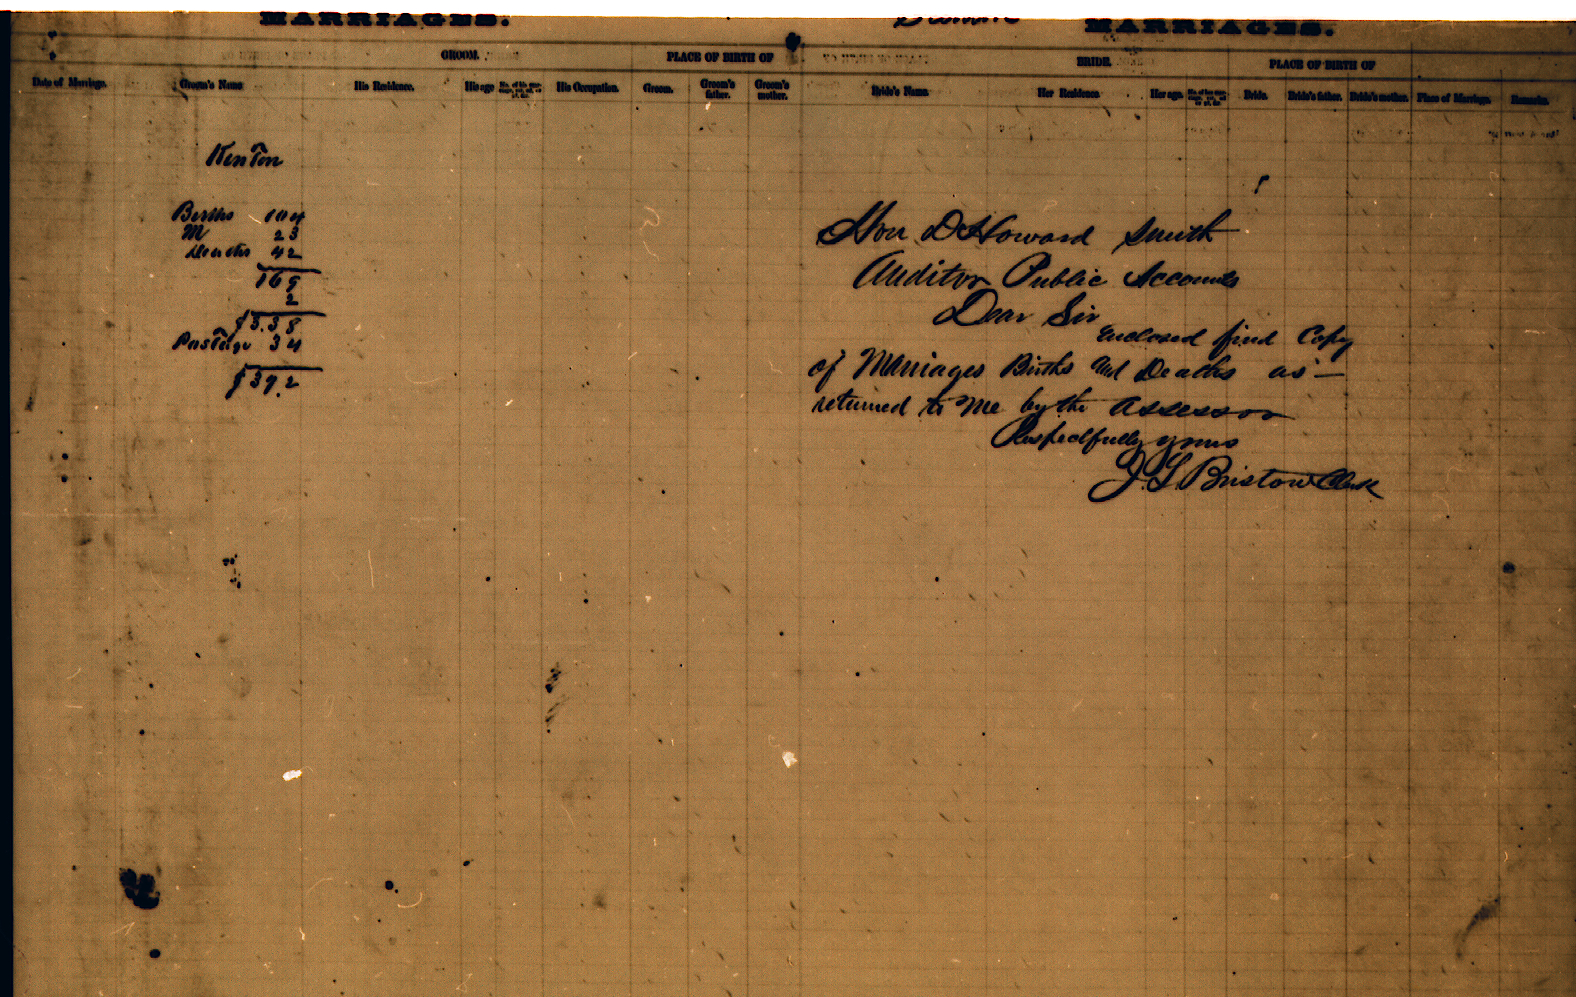 MARRIAGES.
MARRIAGES.
GROOM.
PLACE OF BIRTH OF
BRIDE.
PLACE OF BIRTH OF
Date of Marriage.
Groom's Name
His Residence.
His age
His Occupation.
Groom.
Groom's father.
Groom's mother.
Bride's Name.
Her Residence.
Her age.
Bride.
Bride's father.
Bride's mother.
Place of Marriage.
Remarks.
Kenton
Births 104
M 23
Deaths 42
169
2
$3.38
Postage 34
$3 7.2
Hon D Howard Smith
Auditor Public Accounts
Dear Sir
Enclosed find Copy
of Marriages Births and Deaths as —
returned to Me by the Assessor
Respectfully yours
J. S. Bristow Clerk